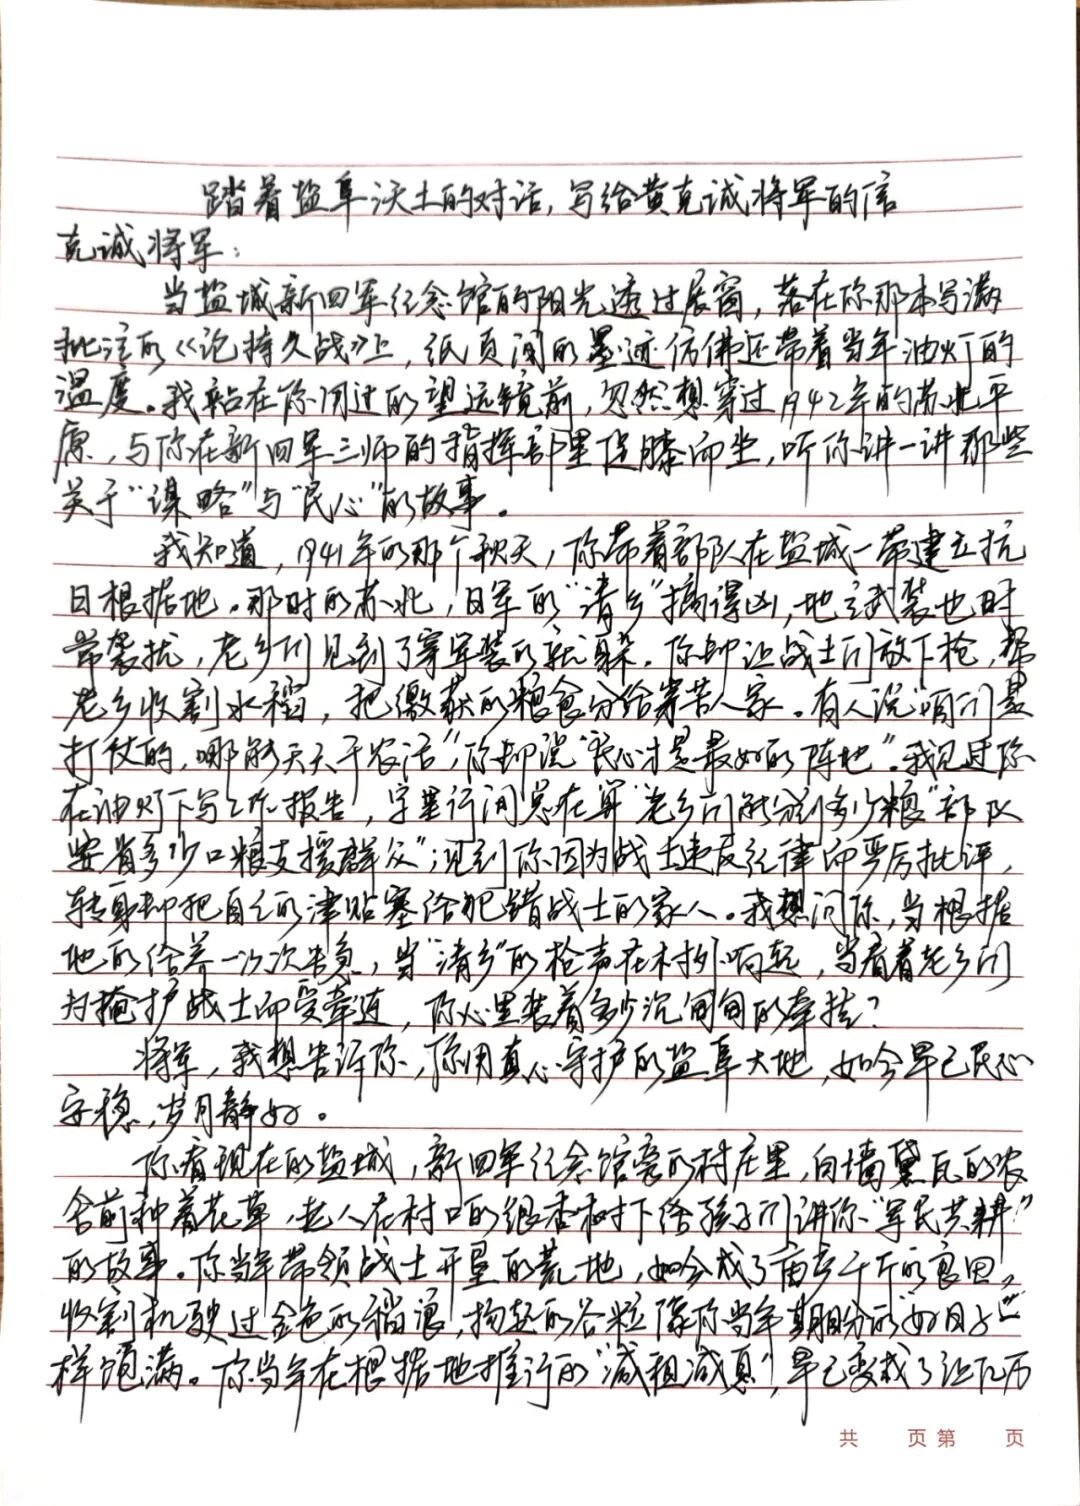 踏着盐阜沃土的对话，写给黄克诚将军的信
克诚将军：
当盐城新四军纪念馆的阳光透过展窗，落在你那本写满
批注的《论持久战》上，纸页间的墨迹仿佛还带着当年油灯的
温度。我站在你用过的望远镜前，忽然想穿过1942年的苏北平
原，与你在新四军三师的指挥部里促膝而坐，听你讲一讲那些
关于“谋略”与“民心”的故事。
我知道，1941年的那个秋天，你带着部队在盐城一带建立抗
日根据地。那时的苏北，日军的“清乡”搞得凶，地主武装也时
常袭扰，老乡们见到了穿军装的就躲。你却让战士们放下枪，帮
老乡收割水稻，把缴获的粮食分给穷苦人家。有人说“咱们是
打仗的，哪能天天干农活”，你却说“民心才是最好的阵地”。我见过你
在油灯下写工作报告，字里行间总在算“老乡们能分到多少粮”“部队
要省多少口粮支援群众”；见到你因为战士违反纪律而严厉批评，
转身却把自己的津贴塞给犯错战士的家人。我想问你，当根据
地的给养一次次告急，当“清乡”的枪声在村外响起，当看着老乡们
为掩护战士而受牵连，你心里装着多少沉甸甸的牵挂？
将军，我想告诉你，你用真心守护的盐阜大地，如今早已民心
安稳，岁月静好。
你看现在的盐城，新四军纪念馆旁的村庄里，白墙黛瓦的农
舍前种着花草，老人在村口的银杏树下给孩子们讲你“军民共耕”
的故事。你当年带领战士开垦的荒地，如今成了亩产千斤的良田，
收割机驶过金色的稻浪，扬起的谷粒像你当年期盼的“好日子”一
样饱满。你当年在根据地推行的“减租减息”，早已变成了让